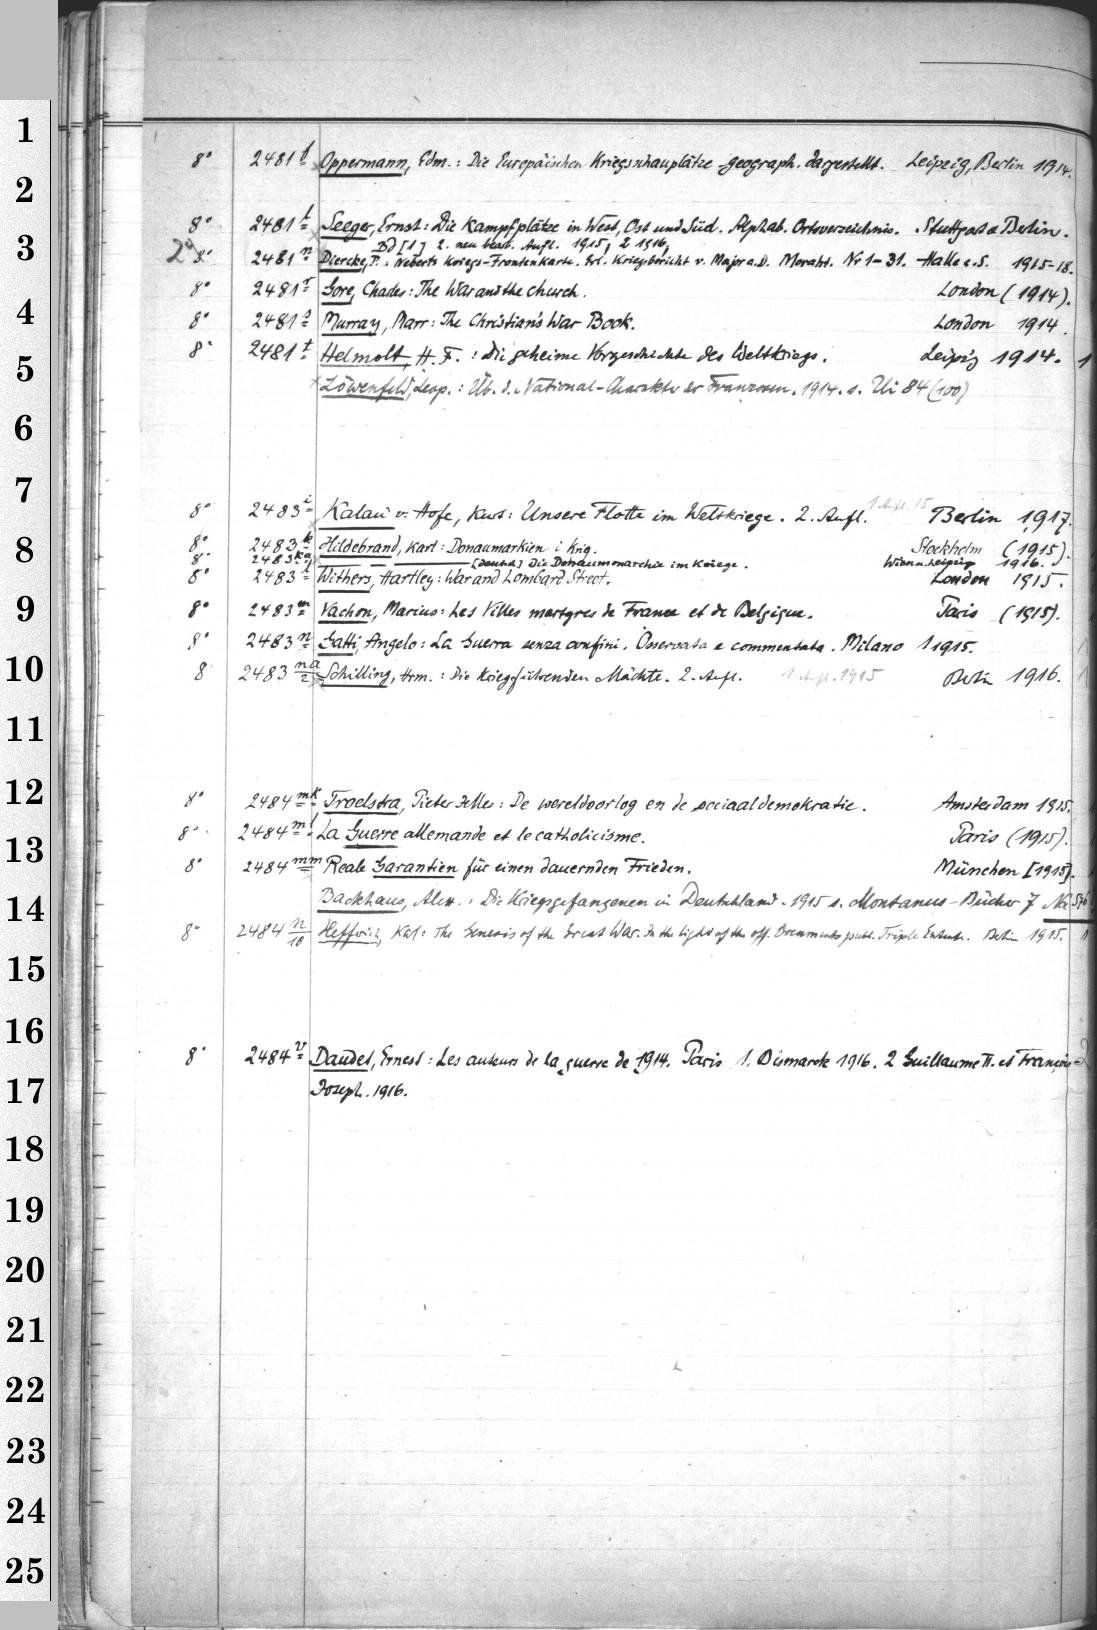 1
8° 2481 f Oppermann, Edm.: Die Europäischen Kriegsschauplätze geograph. dargestellt. Leipzig, Berlin 1914.
2
8° 2481 l Seeger, Ernst: Die Kampfplätze in West, Ost und Süd. Alphab. Ortsverzeichnis. Stuttgart u Berlin.
3
Bd [1] 2. neu bearb. Aufl. 1915, 2 1916,
2° 8° 2481 n Diercke, P.: Neberts Kriegs-Frontenkarte. Erl. Kriegsbericht v. Major a.D. Moraht. Nr 1-31. Halle a.S. 1915-18.
8° 2481 r Gore, Chades: The War and the church. London (1914).
4
8° 2481 s Murray, Marr: The Christian's War Book. London 1914.
8° 2481 t Helmolt, H. F.: Die geheime Vorgeschichte des Weltkriegs. Leipzig 1914. 1
5
Löwenfeld, Leop.: Üb. d. National-Charakter der Franzosen. 1914. s. Un 84 (100)
6
7
1 Aufl. 15
8° 2483 i Kalau v. Hofe, Kurt: Unsere Flotte im Weltkriege. 2. Aufl. Berlin 1917.
8
8° 2483 k Hildebrand, Karl: Donaumarkien i Krig. Stockholm (1915).
8° 2483 ka — — [deutsch] Die Donaumonarchie im Kriege. Wien u. Leipzig 1916.
8° 2483 l Withers, Hartley: War and Lombard Street. London 1915.
9
8° 2483 m Vachon, Marius: Les Villes martyres de France et de Belgique. Paris (1915).
8° 2483 n Gatti, Angelo: La Guerra senza confini. Osservata e commentata. Milano 1 1915.
10
8 2483 na/2 Schilling, Hrm.: Die Kriegführenden Mächte. 2. Aufl. 1. Aufl. 1915 Berlin 1916.
11
12
8° 2484 mk Troelstra, Pieter Jelles: De wereldoorlog en de sociaaldemokratie. Amsterdam 1915.
8° 2484 ml La Guerre allemande et le catholicisme. Paris (1915).
13
8° 2484 mm Reale Garantien für einen dauernden Frieden. München [1915].
14
Backhaus, Alex.: Die Kriegsgefangenen in Deutschland. 1915 s. Montanus-Bücher 7
8° 2484 n/10 Helfferich, Karl: The Genesis of the Great War. In the light of the off. Documents publ. Triple Entente. Berlin 1915. 1
15
16
8° 2484 v Daudet, Ernest: Les auteurs de la guerre de 1914. Paris 1. Bismarck 1916. 2 Guillaume II. et François-
17
Joseph. 1916.
18
19
20
21
22
23
24
25